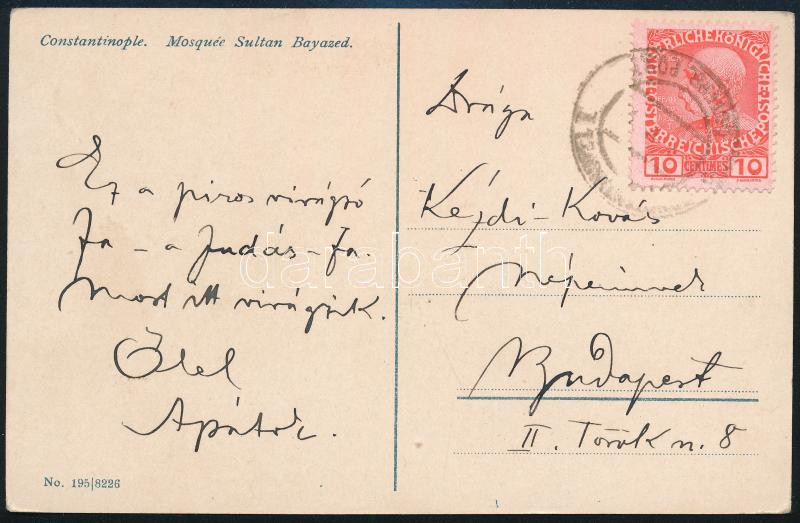 Constantinople. Mosquée Sultan Bayazed.
Ez a piros virágzó
fa – a Judás-fa.
Most itt virágzik.
Ölel
Apátok.
No. 195|8226
Drága
Kézdi-Kovács
Budapest
II. Török u. 8
KAISERLICHEKÖNIGLICHE
ÖSTERREICHISCHE POST
10 CENTIMES 10
darabanth